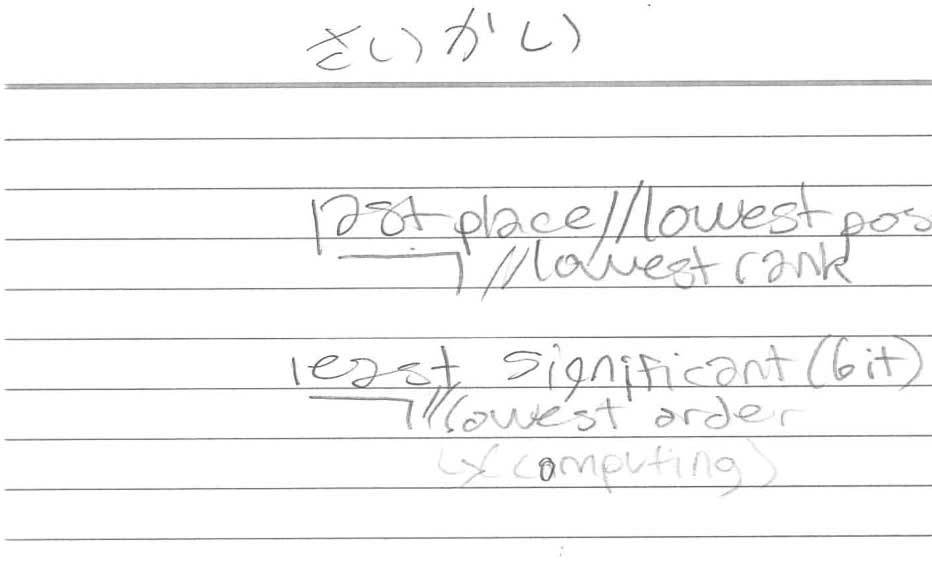 さいかい
last place//lowest pos
//lowest rank
least significant (bit)
//lowest order
(computing)